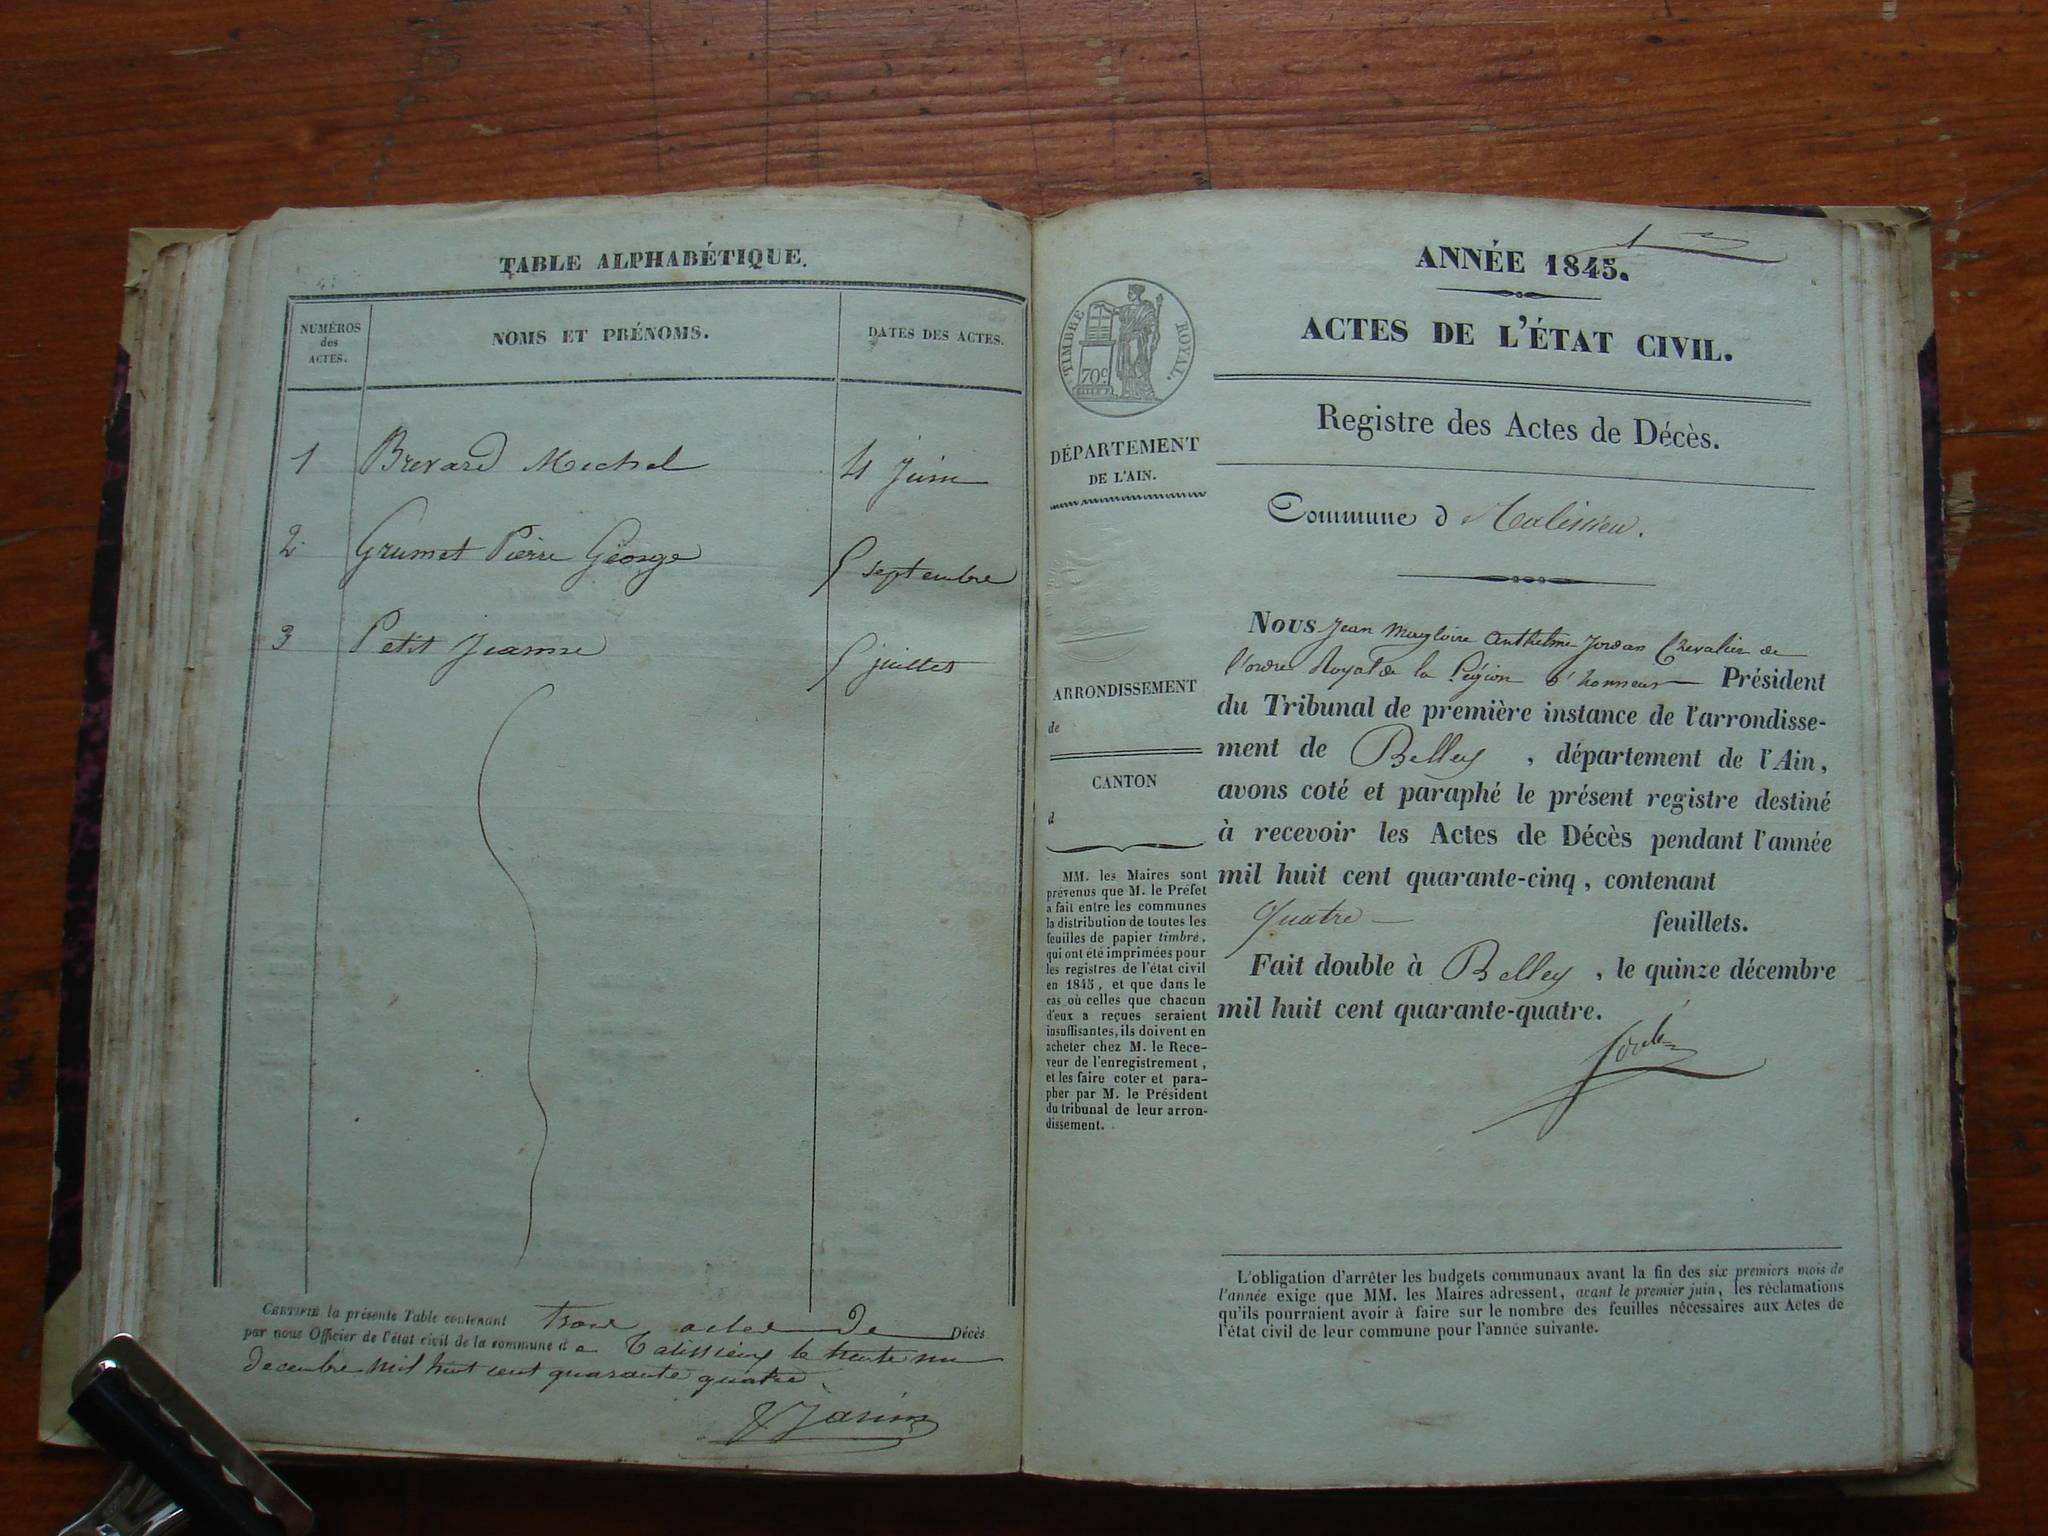 TABLE ALPHABÉTIQUE.
NUMÉROS
des
ACTES.
NOMS ET PRÉNOMS.
DATES DES ACTES.
1 Brevard Michel 4 juin
2 Grumet Pierre George 5 septembre
3 Petit Jeanne 5 juillet
CERTIFIÉ la présente Table contenant trois actes de Décès
par nous Officier de l'état civil de la commune d e Talissieu le trente un
decembre mil huit cent quarante quatre.
Janin
1
ANNÉE 1845.
ACTES DE L'ÉTAT CIVIL.
Registre des Actes de Décès.
Commune d Talissieu.
TIMBRE ROYAL.
70c
DÉPARTEMENT
DE L'AIN.
ARRONDISSEMENT
de
CANTON
d
MM. les Maires sont
prévenus que M. le Préfet
a fait entre les communes
la distribution de toutes les
feuilles de papier timbré,
qui ont été imprimées pour
les registres de l'état civil
en 1845, et que dans le
cas où celles que chacun
d'eux a reçues seraient
insuffisantes, ils doivent en
acheter chez M. le Rece-
veur de l'enregistrement,
et les faire coter et para-
pher par M. le Président
du tribunal de leur arron-
dissement.
Nous Jean Magloire Anthelme Jordan Chevalier de
l'ordre Royal de la Légion d'honneur Président
du Tribunal de première instance de l'arrondisse-
ment de Belley, département de l'Ain,
avons coté et paraphé le présent registre destiné
à recevoir les Actes de Décès pendant l'année
mil huit cent quarante-cinq, contenant
quatre feuillets.
Fait double à Belley, le quinze décembre
mil huit cent quarante-quatre.
L'obligation d'arrêter les budgets communaux avant la fin des six premiers mois de
l'année exige que MM. les Maires adressent, avant le premier juin, les réclamations
qu'ils pourraient avoir à faire sur le nombre des feuilles nécessaires aux Actes de
l'état civil de leur commune pour l'année suivante.